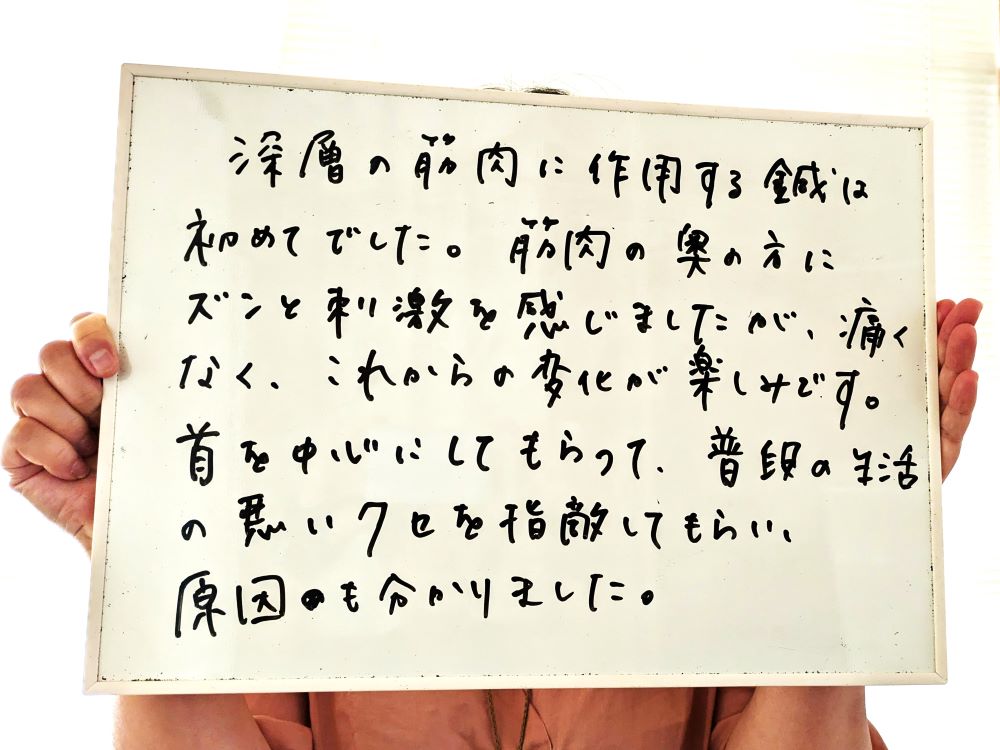 深層の筋肉に作用する鍼は
初めてでした。筋肉の奥の方に
ズンと刺激を感じましたが、痛く
なく、これからの変化が楽しみです。
首を中心にしてもらって、普段の生活
の悪いクセを指敵してもらい、
原因も分かりました。